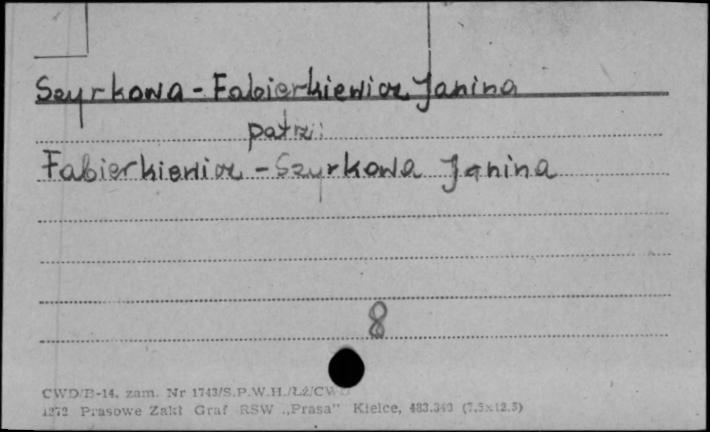 Szyrkowa - Fabierkiewicz Janina
patrz:
Fabierkiewicz - Szyrkowa Janina
8
CWD/B-14. zam. Nr 1743/S.P.W.H./Łż/CWD
1272 Prasowe Zakł Graf RSW „Prasa" Kielce, 483.343 (7.5x12.5)